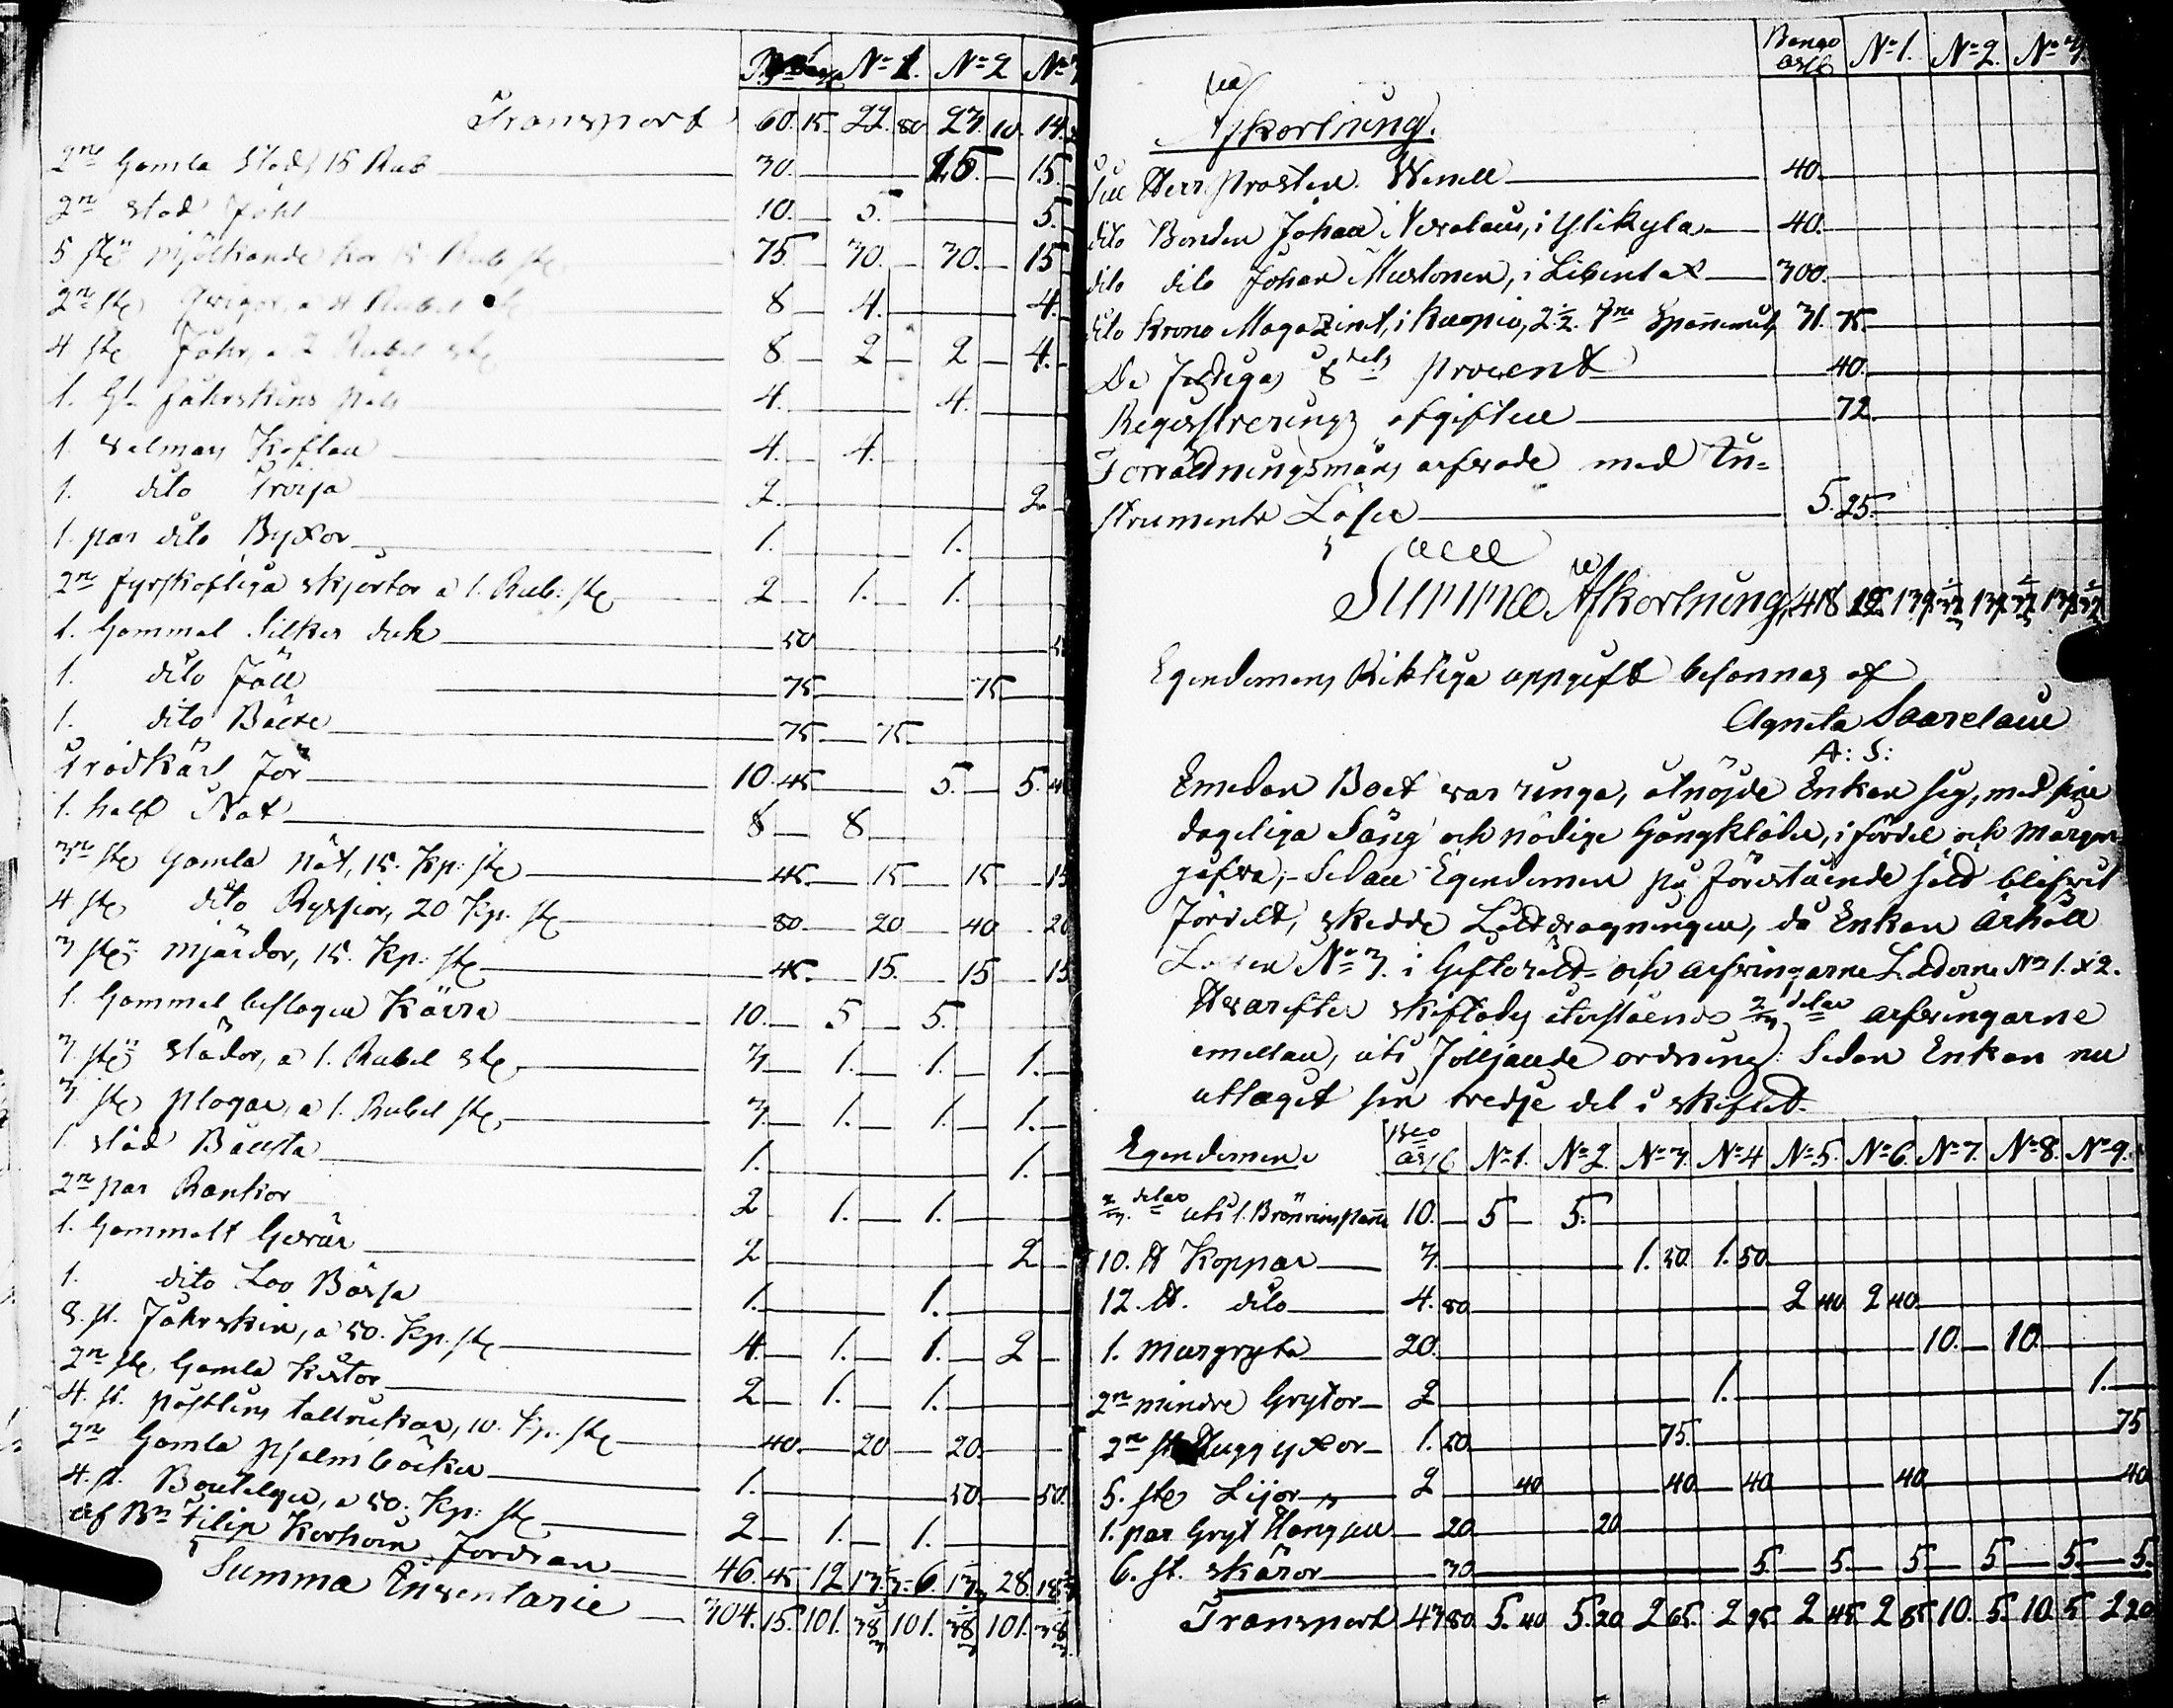 No 1. No 2 No 3
Transport 60. 15. 22. 80 23. 10. 14.
2ne Gamla Stod, 15 Rub 30. 15. 15.
2ne stod fohl 10. 5. 5.
5 ste mjölkande kor 15 Rub ste 75 30. 30. 15
2ne ste Qvigor, a 4 Rubel ste 8 4. 4.
4 ste Fåhr, a 2 Rubel ste 8 2 2 4.
1. Gl. fåhrskins päls 4. 4.
1. valmars Kaftan 4. 4.
1. dito Tröija 2. 2
1. par dito Byxor 1. 1.
2ne fyrskaftiga skjortor a 1. Rub: ste 2 1. 1.
1. Gammal Silkes duk 50
1. dito fäll 75 75
1. dito 75 75
Trädkärl för 10. 45 5. 5. 40
1. half Not 8 8
3ne ste Gamla nät, 15. Kp: ste 45. 15 15 15
4 ste dito Ryssior, 20 Kp. ste 80. 20 40 20
3 ste mjärdor, 15. Kp: ste 45. 15. 15 15
1. Gammal beslagen Kärra 10. 5 5.
3. ste slädor, a 1. Rubel ste 3 1. 1. 1.
3. ste plogar, a 1. Rubel ste 3. 1. 1. 1.
1. städ 1. 1.
2ne par Rankor 2 1. 1.
1. Gammalt Gevär 2 2
1. dito Loo Börsa 1. 1.
8. st. Fåhrskin, a 50. Kp. ste 4. 1. 1. 2
2ne ste Gamla Kistor 2 1. 1.
4. st. postlins taltrickar, 10. Kp. ste 40. 20 20.
2ne Gamla psalmböcker 1. 50. 50.
4. st. Boutelger, a 50. Kp: ste 2 1. 1.
af Bn Filip Korhoin, fordran 46. 45 12 13 1/3 6. 13 28. 18
Summa Inventarie 304. 15. 101. 38 101. 38 101. 38
Banco assg No 1. No 2. No 3
Afkortning.
Till Herr Prosten Wenell 40.
dito Bonden Johan i Ylikylä 40.
dito dito Johan Mustonen, i 300.
dito Krono Magazinet, i Kuopio, 2 1/2. 31. 75
De fattigas 8dels procent 40.
Regisstrerings afgiften 72
Förrättningsmäns arfvode med In=
strumente Lösen 5. 25.
Summa Afkortning 418 12 139 139 139
Egendomens Riktiga uppgift besannas af
Agneta Saarelain
A: S:
Emedan Boet var ringa, åtnöjde Enkan sig, med sin
dageliga Säng och nödige Gångkläder, i fördel och Morgon
gåfva; - Sedan Egendomen på förestående sätt blifvit
fördelt, skedde Lottdragningen, då Enkan ärhöll
Lotten No 3. i Giftorätt - och arfvingarne Lotterne No 1. & 2.
Hvarefter skiftades återstående 2/3 delar arfvingarne
emellan, uti följande ordning: Sedan Enkan nu
uttagit sin tredje del i skiftet.
Egendomen Bco assg No 1. No 2. No 3. No 4 No 5. No 6. No 7. No 8. No 9.
2/3 delar uti 1. Brännvinspanna 10. 5 5.
10. ℔ Koppar 3. 1. 50 1. 50.
12. ℔. dito 4. 80 2 40 2 40.
1. murgryta 20. 10. 10.
2ne mindre Grytor 2 1. 1.
2ne st Huggyxor 1. 50 75. 75
5. ste Lijor 2 40 40 40 40 40
1. par Gryt Hangen 20 20
6. st. skäror 30 5. 5. 5. 5 5. 5.
Transport 43 80 5. 40 5. 20 2 65. 2 95. 2 45. 2 85 10. 5. 10. 5 2 20